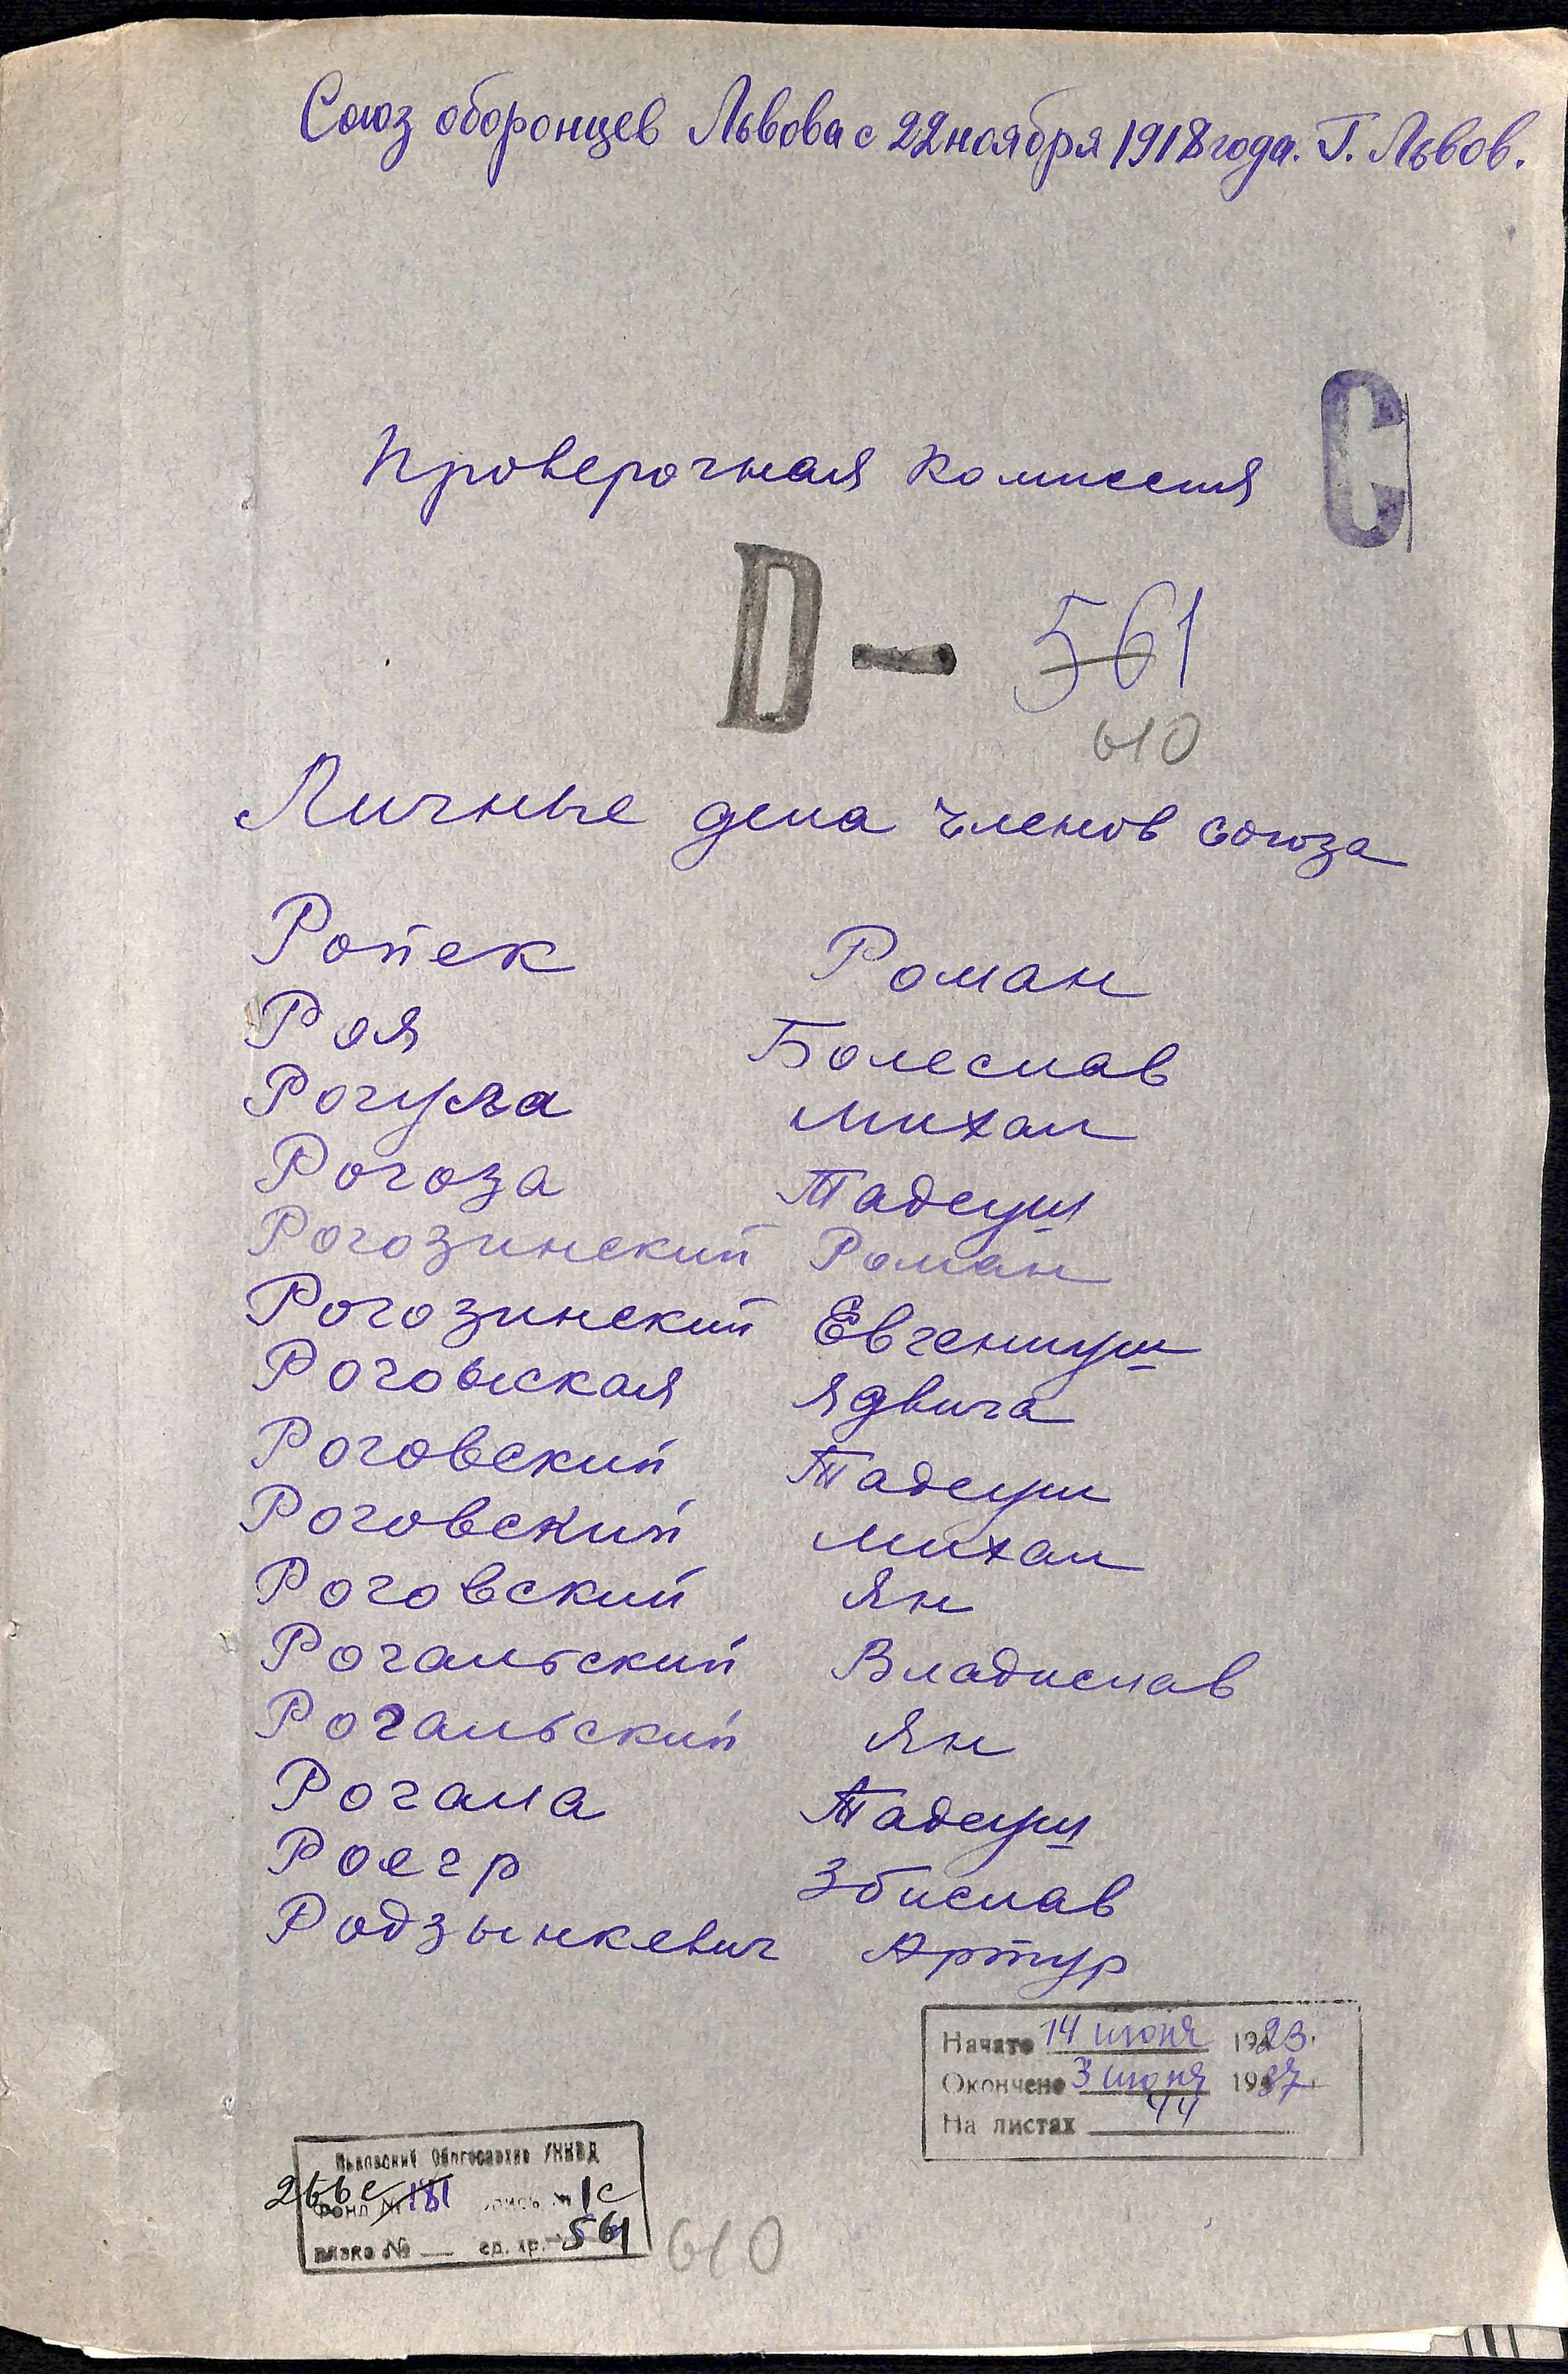 Союз оборонцев Львова с 22 ноября 1918 года. Г. Львов.
С
Проверочная комиссия
D — 561
610
Личные дела членов союза
Ропек Роман
Роя Болеслав
Рогуля Михал
Рогоза Тадеуш
Рогозинский Роман
Рогозинский Евгениуш
Роговская Ядвига
Роговский Тадеуш
Роговский Михал
Роговский Ян
Рогальский Владислав
Рогальский Ян
Рогала Тадеуш
Роегр Збислав
Родзынкевич Артур
Начато 14 июня 1923.
Окончено 3 июня 1937
На листах 44
Львовский Облгосархив УНКВД
266с Фонд № 181 опись № 1с
вязка № ед. хр. 561
610